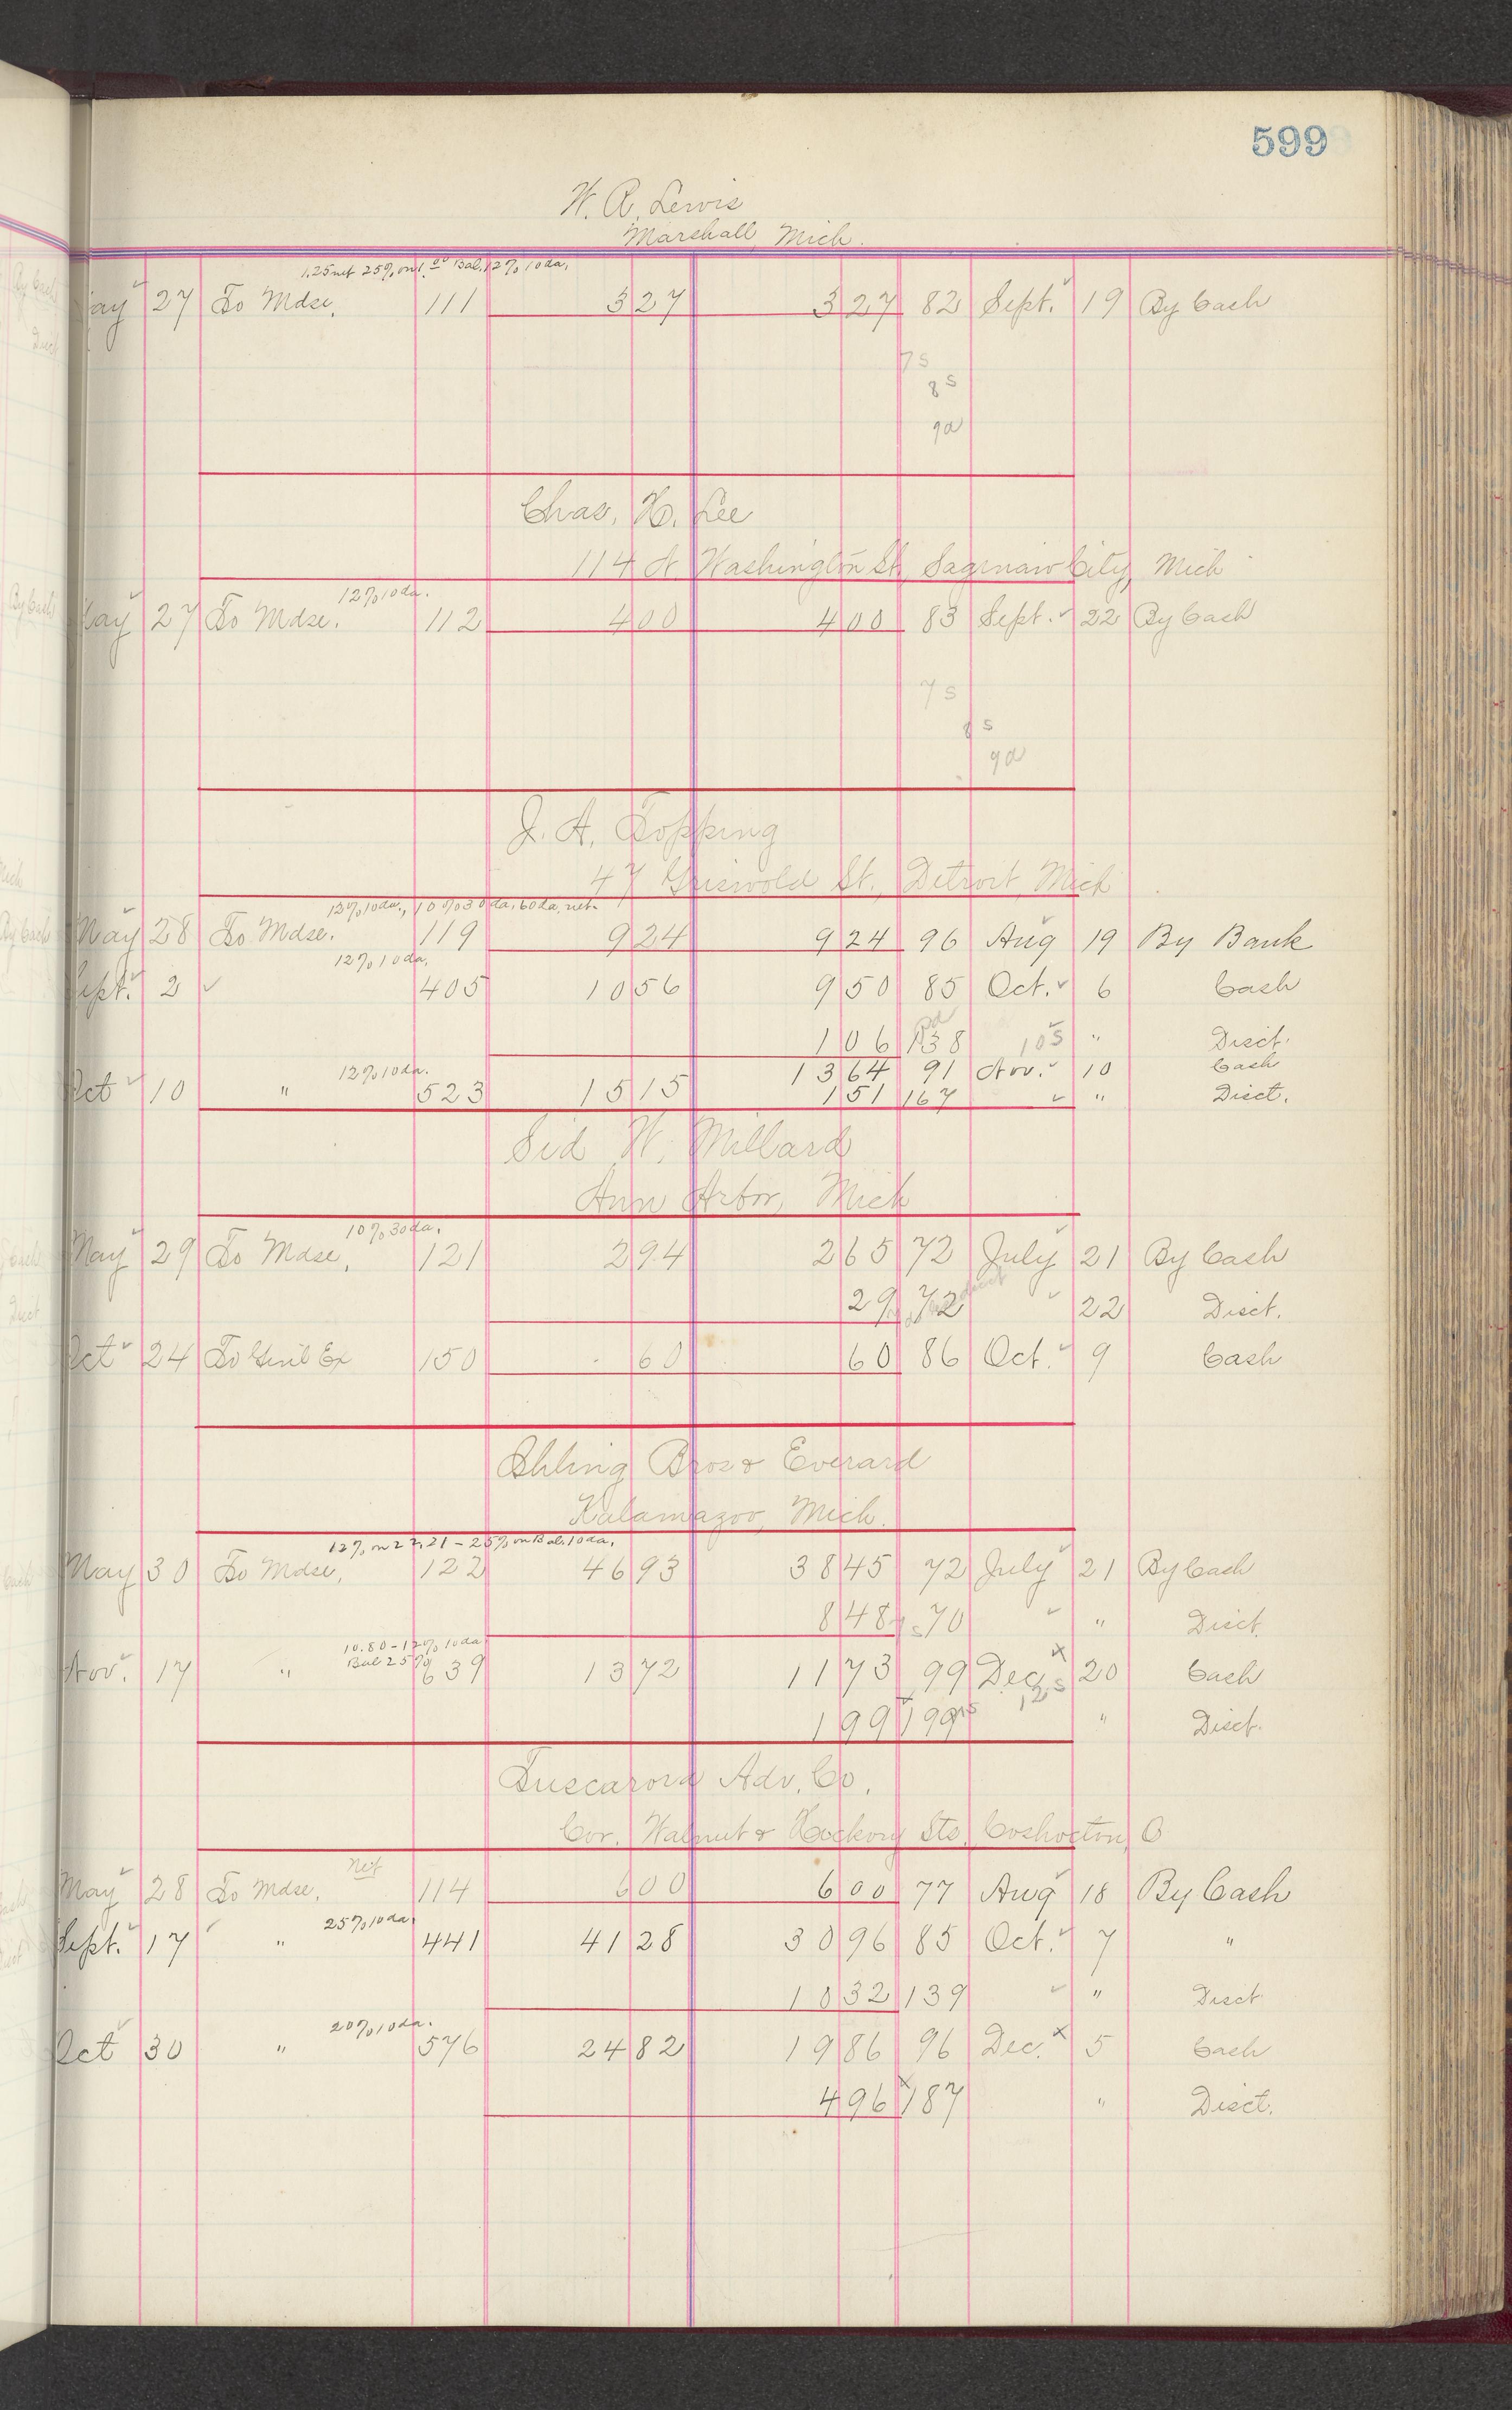 599
W. R. Lewis
Marshall, Mich.
1.25 net 25% on 1.00 Bal. 12% 10 da.
ay 27 To Mdse. 111 3 27 3 27 82 Sept. 19 By Cash
7 s
8 s
9 a
Chas. H. Lee
114 N. Washington St. Saginaw City, Mich
12% 10 da.
ay 27 To Mdse. 112 4 00 4 00 83 Sept. 22 By Cash
7 s
8 s
9 a
J. A. Topping
47 Griswold St., Detroit, Mich
12% 10 da., 10% 30 da. 60 da. net.
May 28 To Mdse. 119 9 24 9 24 96 Aug 19 By Bank
12% 10 da.
Sept. 2 405 10 56 9 50 85 Oct. 6 Cash
1 06 138 10 s " Disct.
12% 10 da.
13 64 91 Nov. 10 Cash
Oct 10 " 523 15 15 1 51 167 " Disct.
Sid W. Millard
Ann Arbor, Mich
10% 30 da.
May 29 To Mdse. 121 2 94 2 65 72 July 21 By Cash
29 72 22 Disct.
Oct 24 To Genl Ex 150 60 60 86 Oct. 9 Cash
Ihling Bros & Everard
Kalamazoo, Mich.
12% on 22.21 - 25% on Bal. 10 da.
May 30 To Mdse. 122 46 93 38 45 72 July 21 By Cash
8 48 70 " Disct.
10.80 - 12% 10 da
Bal 25%
Nov. 17 " 639 13 72 11 73 99 Dec. 20 Cash
12 s
1 99 199 " Disct.
Tuscarora Adv. Co.
Cor. Walnut & Hickory Sts. Coshocton, O
Net
May 28 To Mdse. 114 6 00 6 00 77 Aug 18 By Cash
25% 10 da.
Sept. 17 " 441 41 28 30 96 85 Oct. 7 "
10 32 139 " Disct
20% 10 da.
Oct 30 " 576 24 82 19 86 96 Dec. 5 Cash
4 96 187 " Disct.